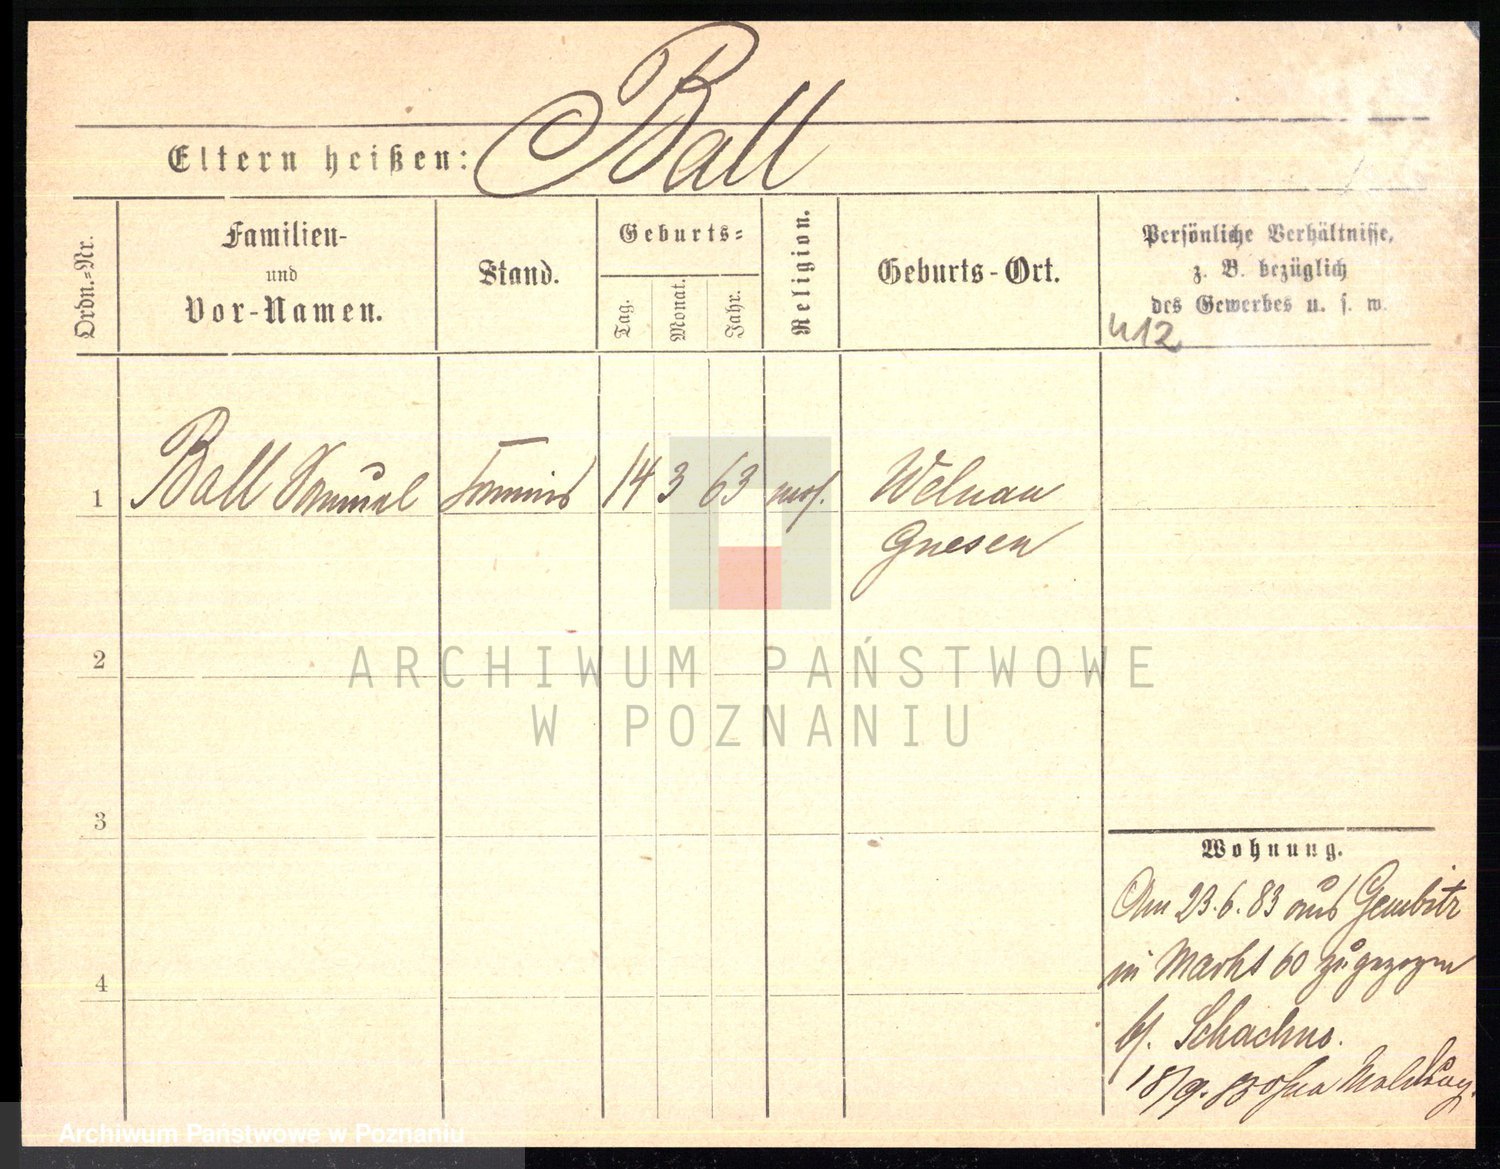 Ball
Eltern heißen:
Ordn.-Nr.
Familien-
und
Vor-Namen.
Stand.
Geburts-
Tag.
Monat.
Jahr.
Religion.
Geburts-Ort.
Persönliche Verhältnisse,
z. B. bezüglich
des Gewerbes u. s. w.
412
1 Ball Samuel Commis 14 3 63 mos. Welnau
Gnesen
2
3
4
ARCHIWUM PAŃSTWOWE
W POZNANIU
Wohnung.
Am 23.6.83 aus Gembitz
in Markt 60 zugezogen
b/. Schachno.
18/9. 83 ohne Meldung.
Archiwum Państwowe w Poznaniu